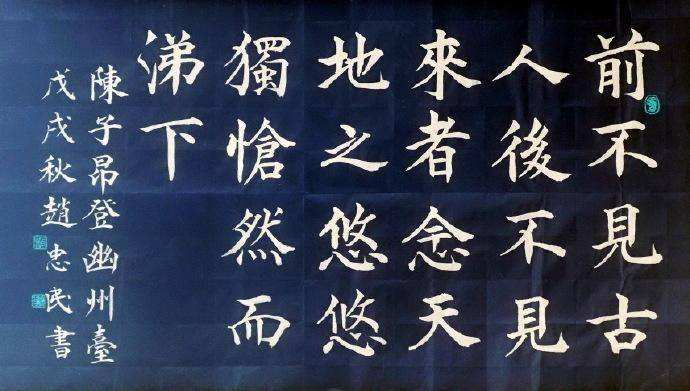 前不見古
人後不見
來者念天
地之悠悠
獨愴然而
涕下
陳子昂登幽州臺
戊戌秋趙忠民書